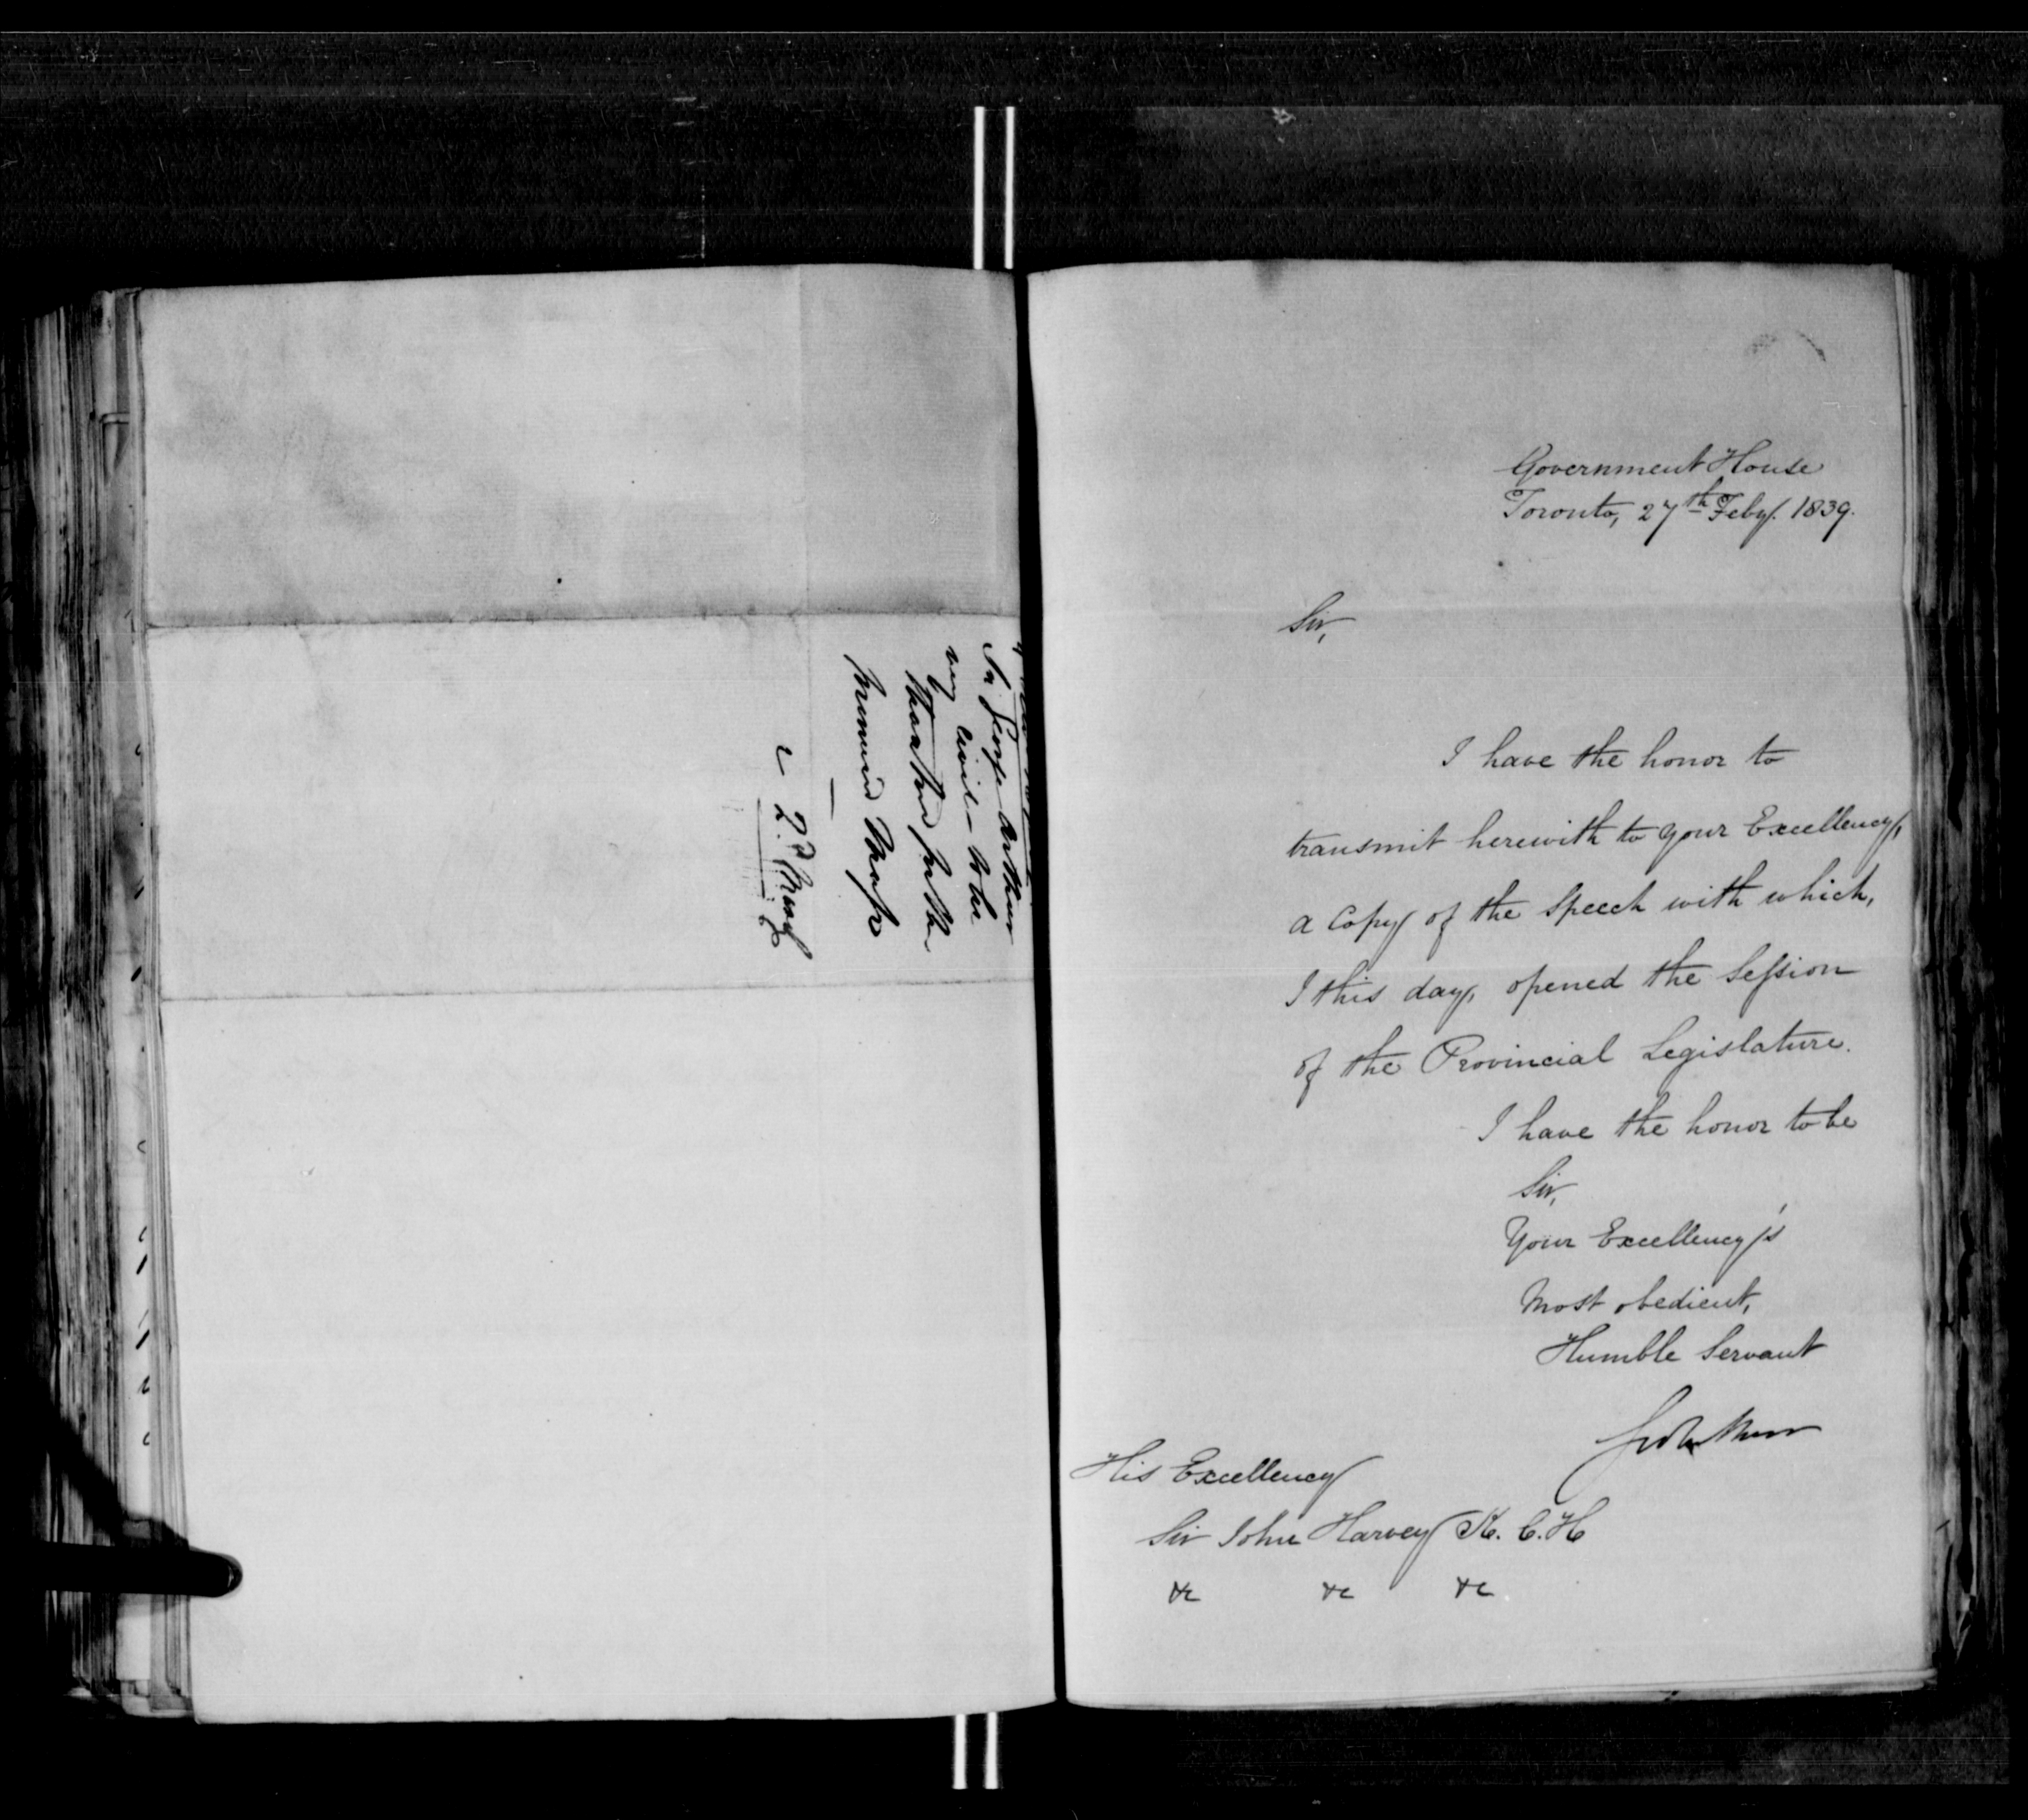 Sir George Arthur
very civil - to be
thanked for the
promised
2d March
Government House
Toronto, 27th Feby. 1839.
Sir,
I have the honor to
transmit herewith to your Excellency,
a Copy of the Speech with which,
I this day, opened the Session
of the Provincial Legislature.
I have the honor to be
Sir,
Your Excellency's
Most obedient,
Humble Servant
Geo Arthur
His Excellency
Sir John Harvey K. C. H
&c &c &c